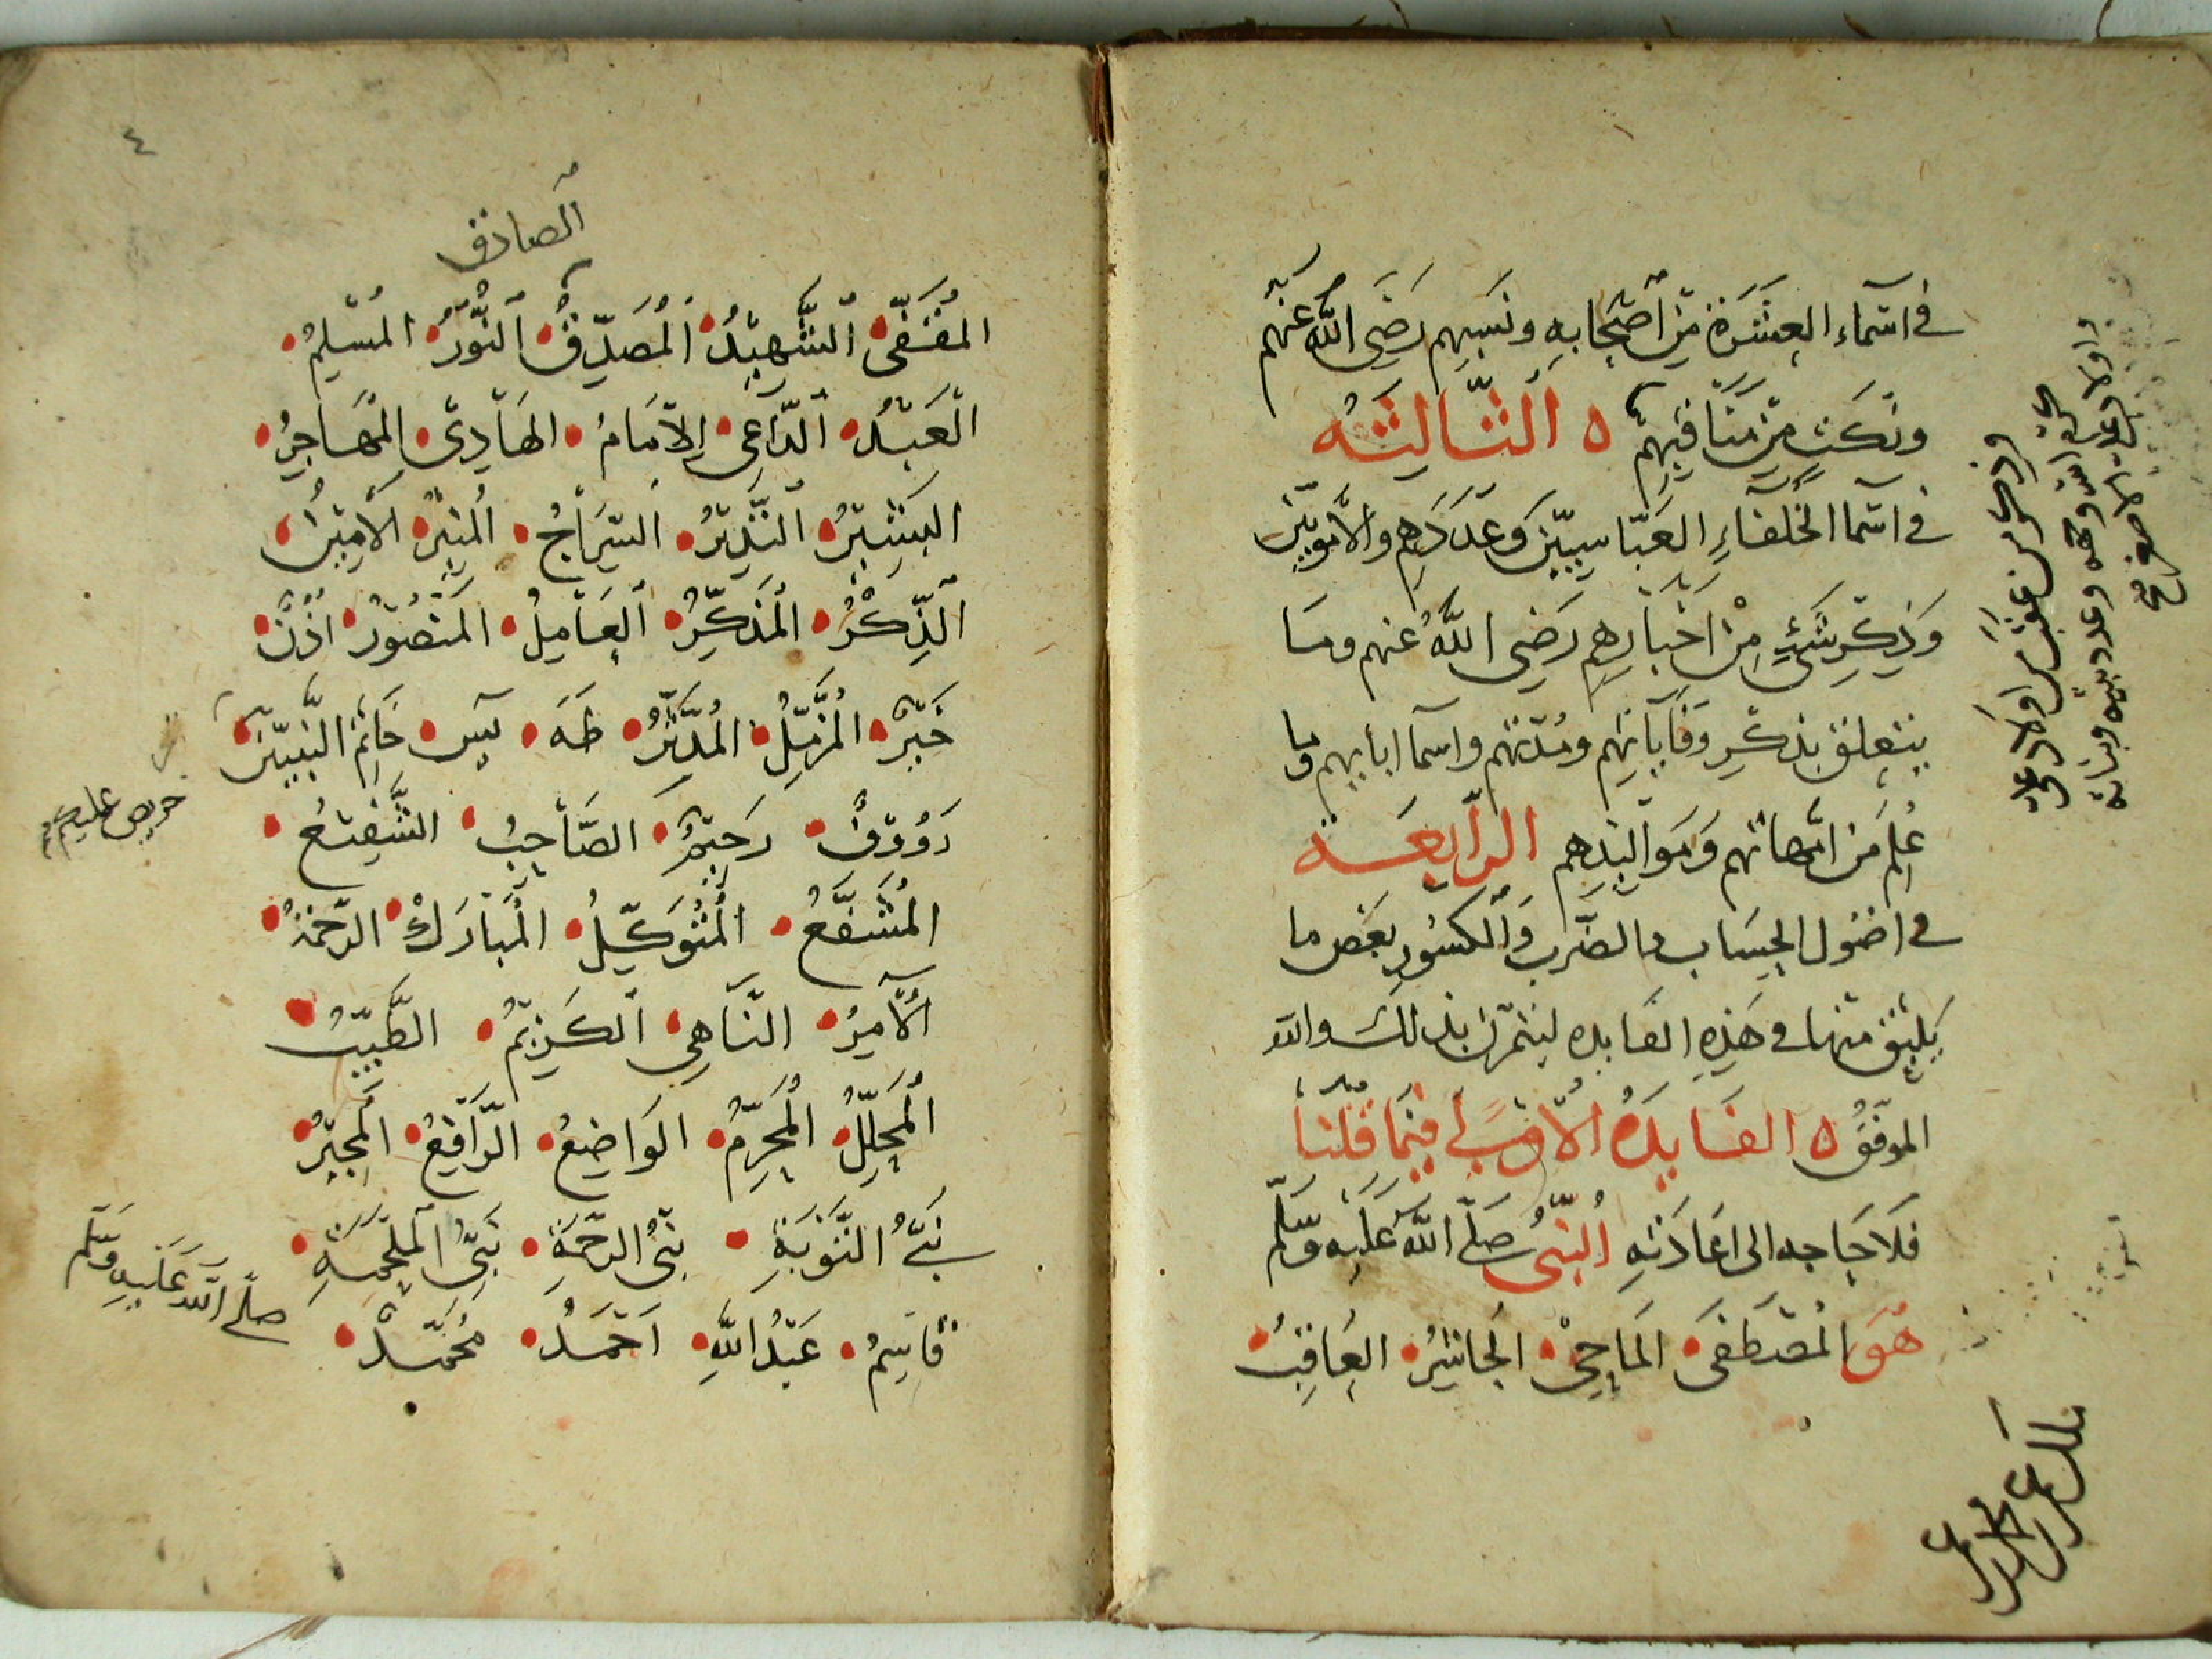 في اسماء العشرة من اصحابه ونسبهم رضي الله عنهم
ونكت من مناقبهم ه الثالثه
في اسما الخلفاء العباسيين وعددهم والامويين
وذكر شيء من اخبارهم رضي الله عنهم وما
يتعلق بذكر وفاياتهم ومدتهم واسما ابايهم وما
علم من امهاتهم ومواليدهم الرابعة
في اصول الحساب والضرب والكسور بعض ما
يليق منها في هذه الفايده ليتمرن بذلك والله
الموفق ه الفايده الاولى فيما قلنا
فلا حاجه الى اعادته النبي صلى الله عليه وسلم
هو المصطفى الماحي الحاشر العاقب
٤
الصادق
المقفى الشهيد المصدق النور المسلم
العبد الداعي الامام الهادي المهاجر
البشير النذير السراج المنير الامين
الذكر المذكر العامل المنصور اذن
خير المزمل المدثر طه يس خاتم النبيين
حريص عليكم
رووف رحيم الصاحب الشفيع
المشفع المتوكل المبارك الرحمة
الآمر الناهي الكريم الطيب
المحلل المحرم الواضع الرافع المجير
نبي التوبة نبي الرحمة نبي الملحمة
قاسم عبد الله احمد محمد
صلى الله عليه وسلم